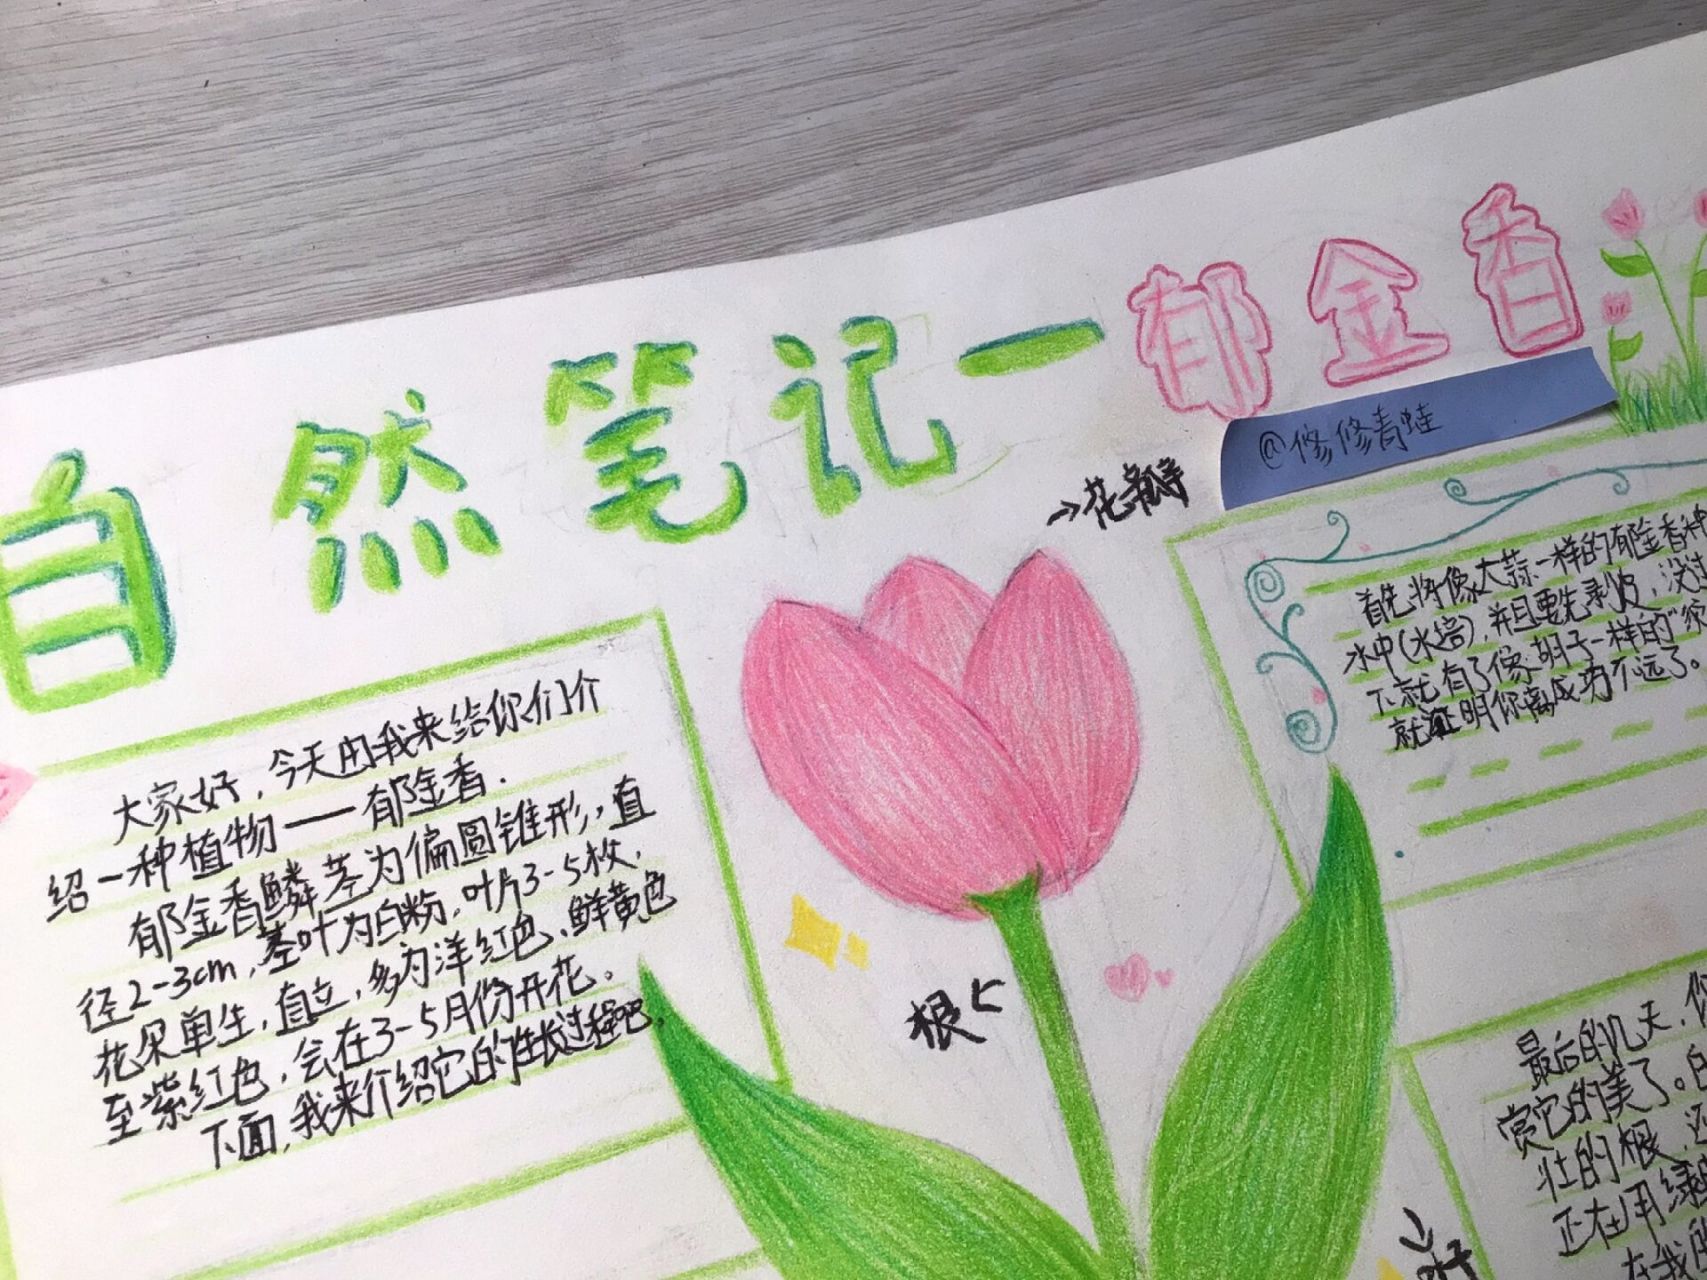 自然笔记一郁金香
@修修青蛙
→花瓣
大家好，今天由我来给你们介
绍一种植物——郁金香．
郁金香鳞茎为偏圆锥形，直
径2-3cm，茎叶为白粉，叶片3-5枚，
花朵单生，直立，多为洋红色、鲜黄色
至紫红色，会在3-5月份开花。
下面，我来介绍它的生长过程吧．
根
首先将像大蒜一样的郁金香种
水中(水培)，并且要先剥皮，没过
下就有了像胡子一样的“
就证明你离成功不远了。
最后的几天，你
赏它的美了。
壮的根，还
正在用绿
在我的
叶